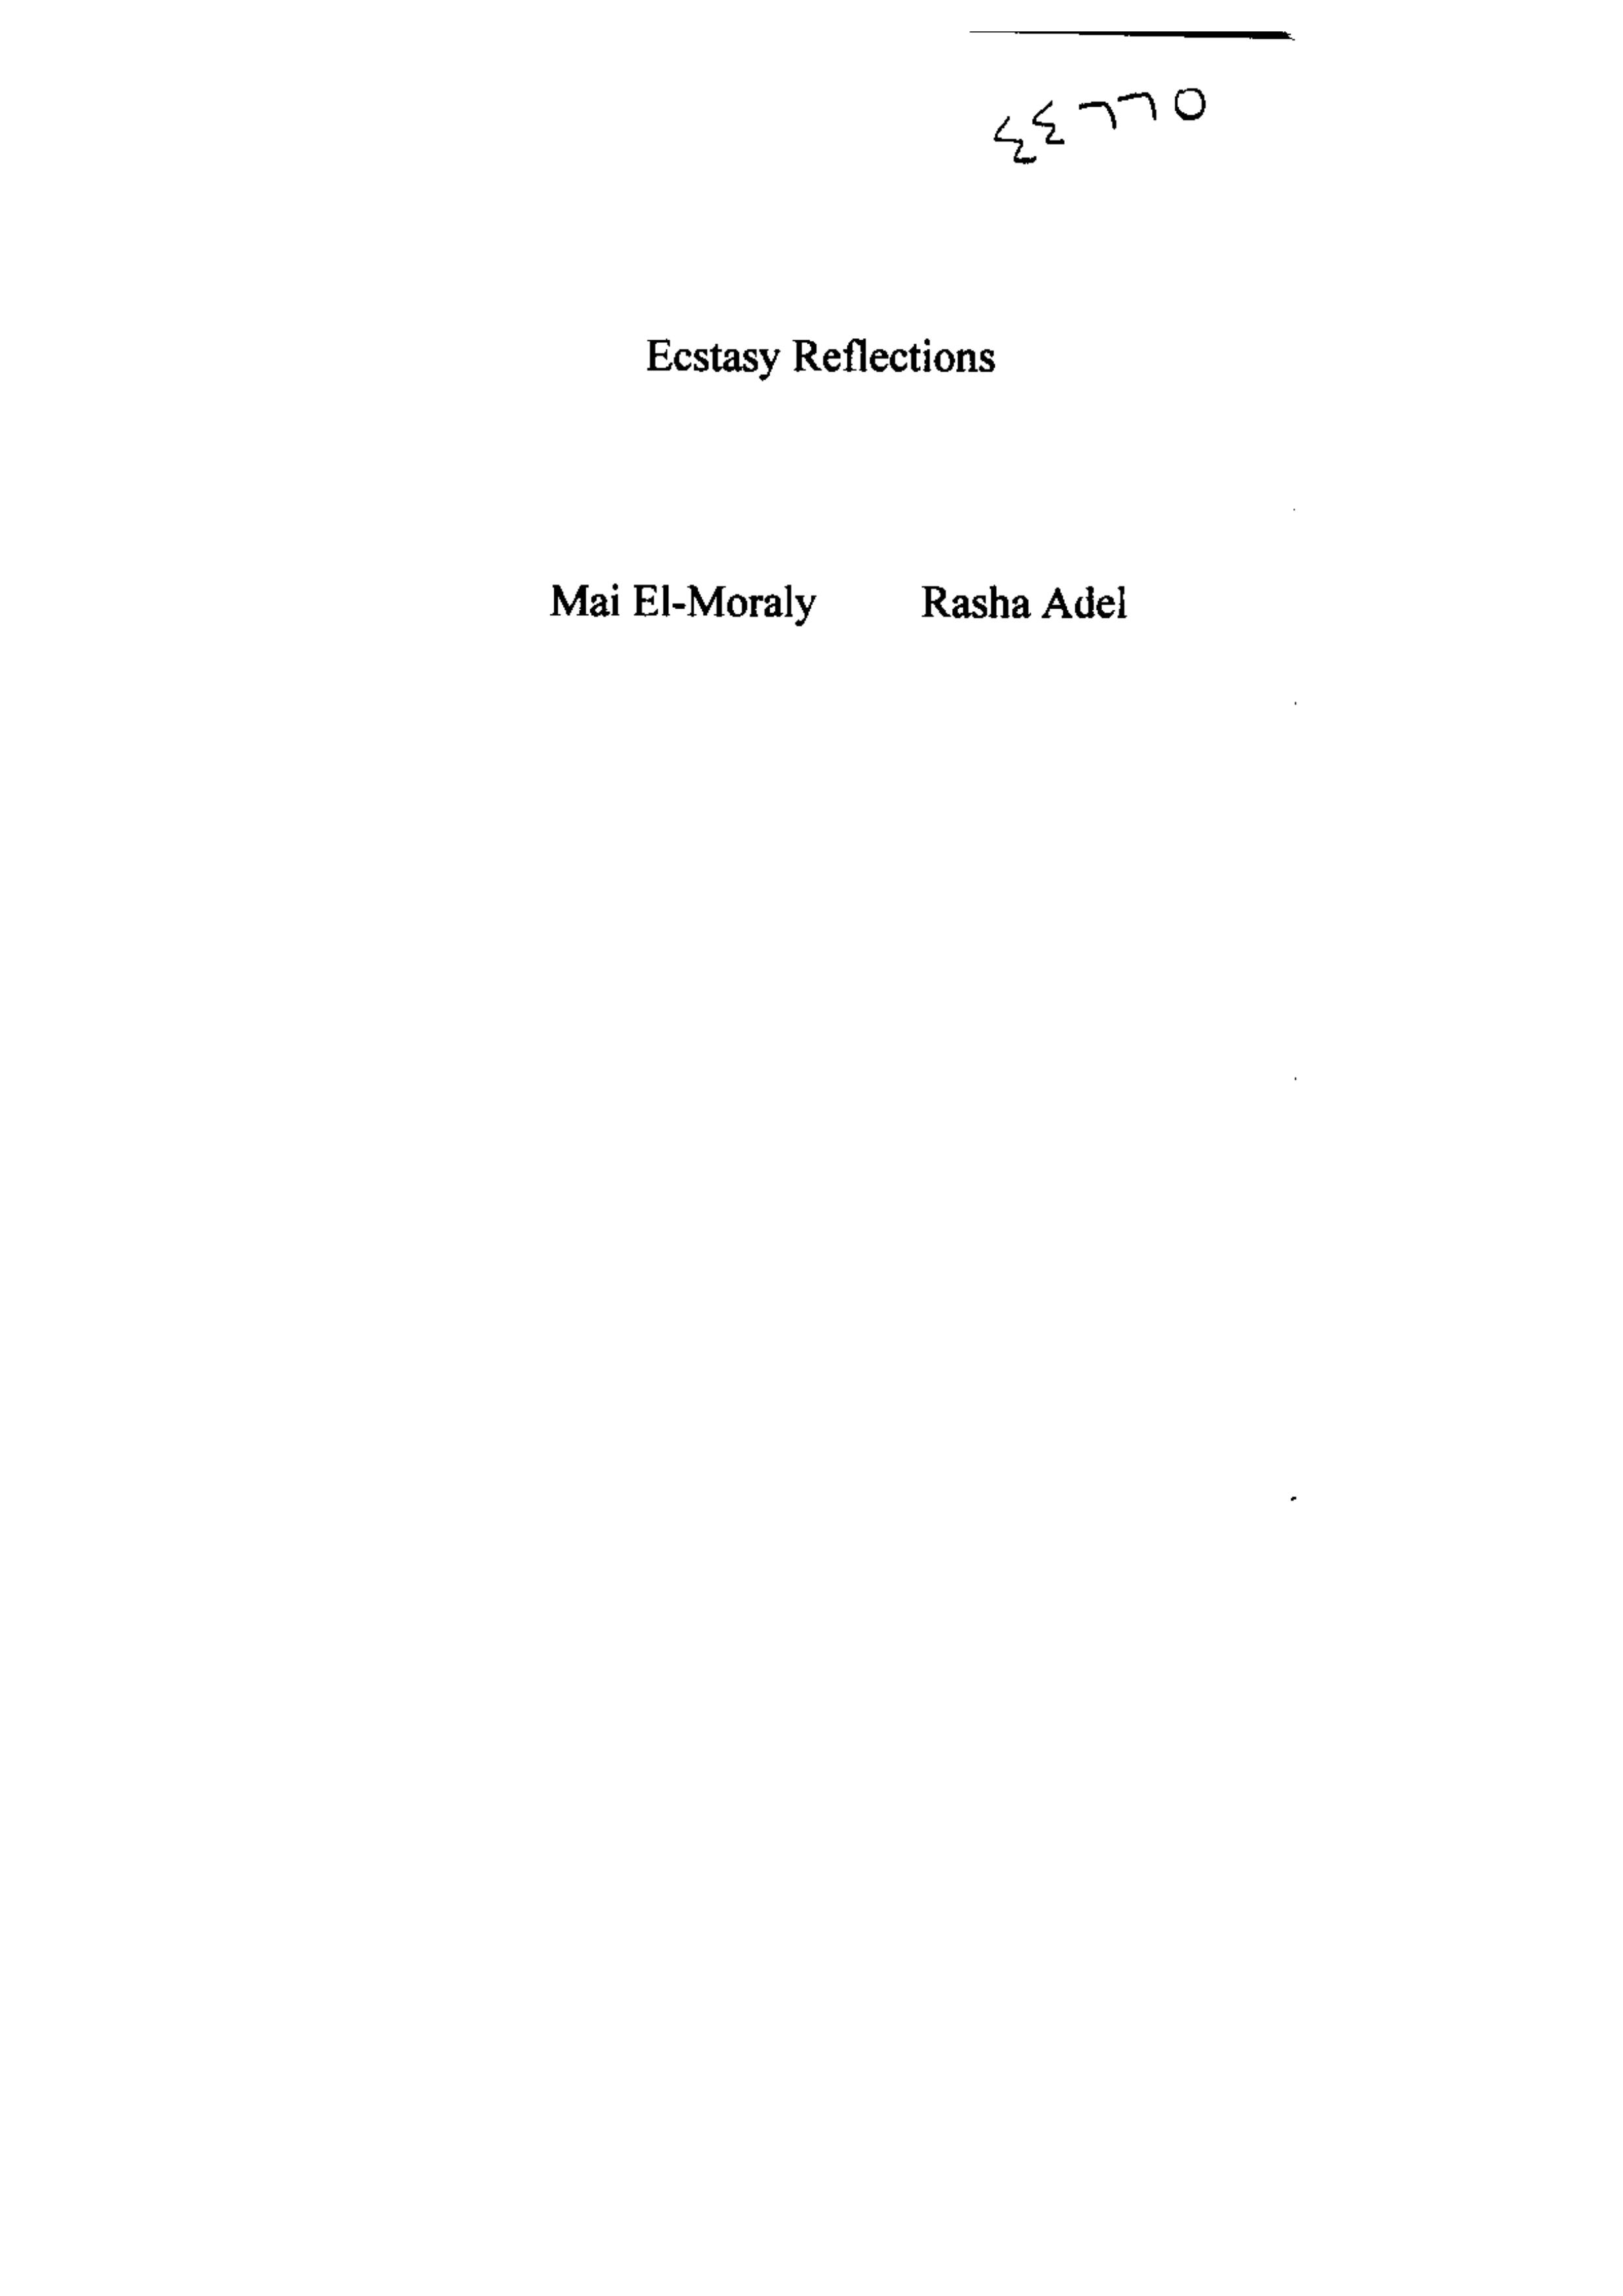 ٤٤٦٦٥
Ecstasy Reflections
Mai El-Moraly Rasha Adel